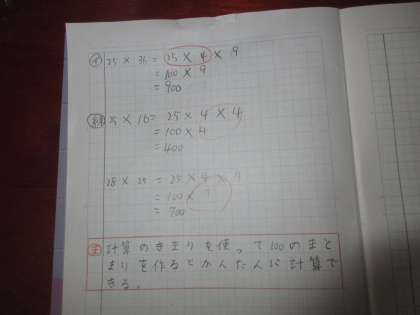 ㋑ 25 × 36 = 25 × 4 × 9
= 100 × 9
= 900
25 × 16 = 25 × 4 × 4
= 100 × 4
= 400
28 × 25 = 25 × 4 ×
= 100 × 7
= 700
計算のきまりを使って100のまと
まりを作るとかんたんに計算で
きる。